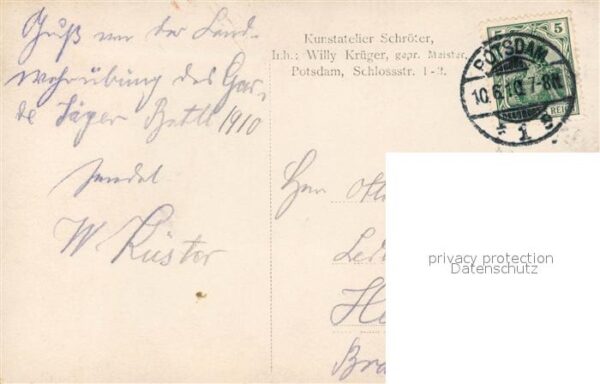 Gruß von der Land-
wehrübung des Gar-
de Jäger Batl 1910
sendet
W Küster
Kunstatelier Schröter,
Inh.: Willy Krüger, gepr. Meister,
Potsdam, Schlossstr. 1-2.
5 5
POTSDAM
10.6.10. 7-8N
* 1 g
REICH
Herrn
privacy protection
Datenschutz